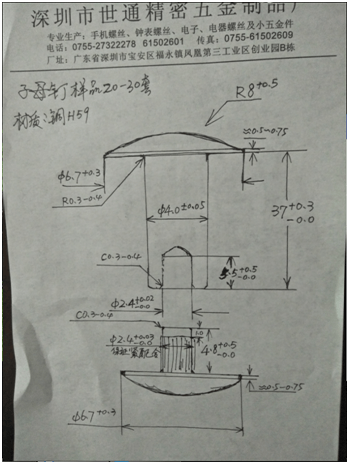 深圳市世通精密五金制品厂
专业生产：手机螺丝、钟表螺丝、电子、电器螺丝及小五金件
电话：0755-27322278 61502601 传真：0755-61502609
厂址：广东省深圳市宝安区福永镇凤凰第三工业区创业园B栋
子母钉样品20-30套
材质：铜H59
R8+0.5
≈0.5-0.75
Φ6.7+0.3
R0.3-0.4
Φ4.0±0.05
37+0.3-0.0
C0.3-0.4
5.5+0.5-0.0
Φ2.4+0.02-0.0
C0.3-0.4
Φ2.4+0.03-0.0
1.0
4.8+0.5-0.0
紧配合
≈0.5-0.75
Φ6.7+0.3